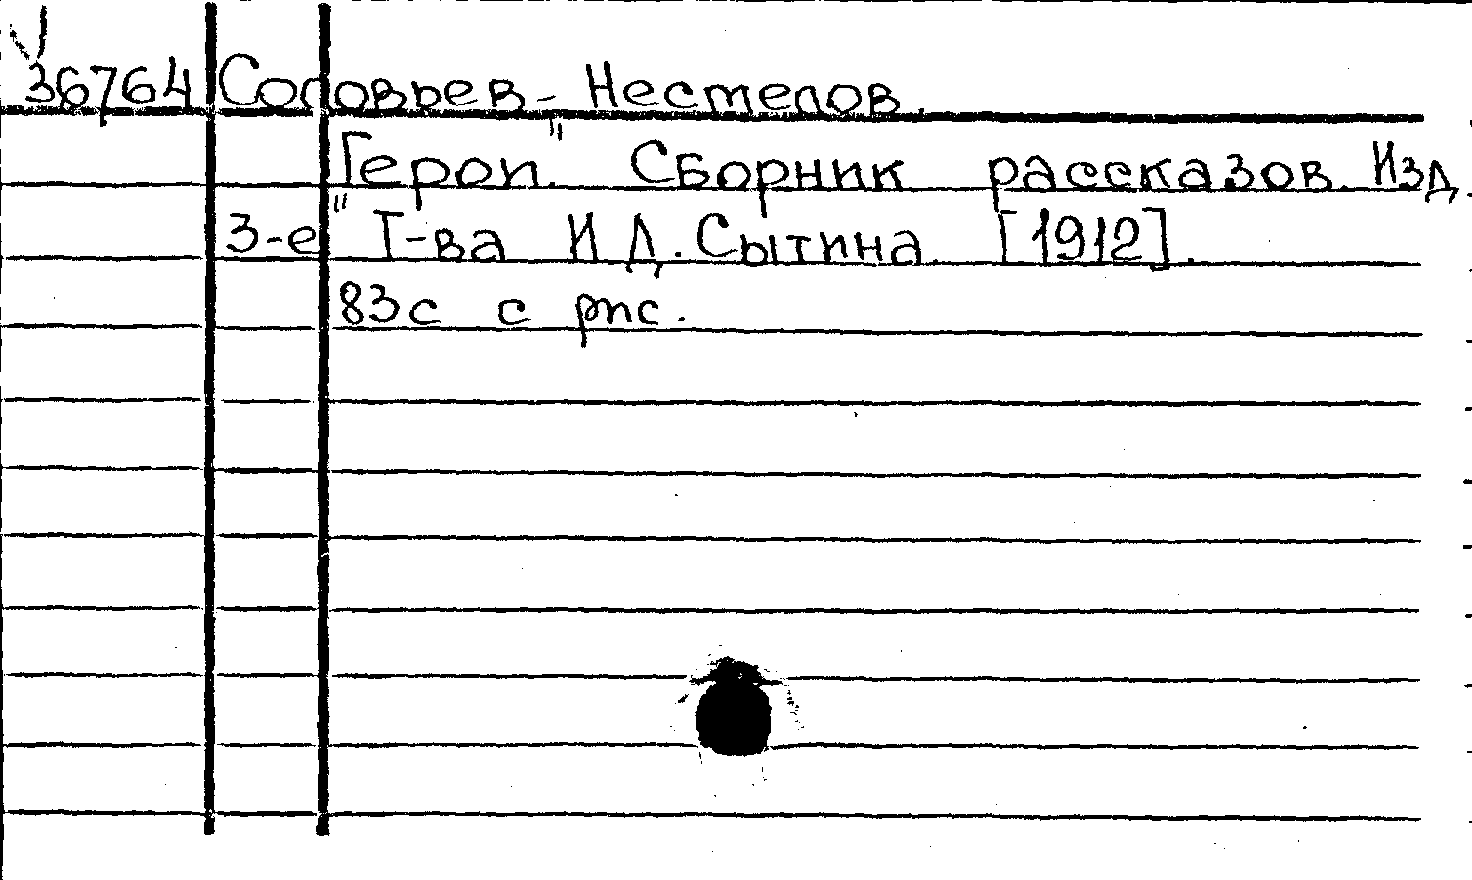 36764 Соловьев-Нестелов.
"Герои". Сборник рассказов. Изд.
3-е Т-ва И.Д. Сытина. [1912].
83с с рис.